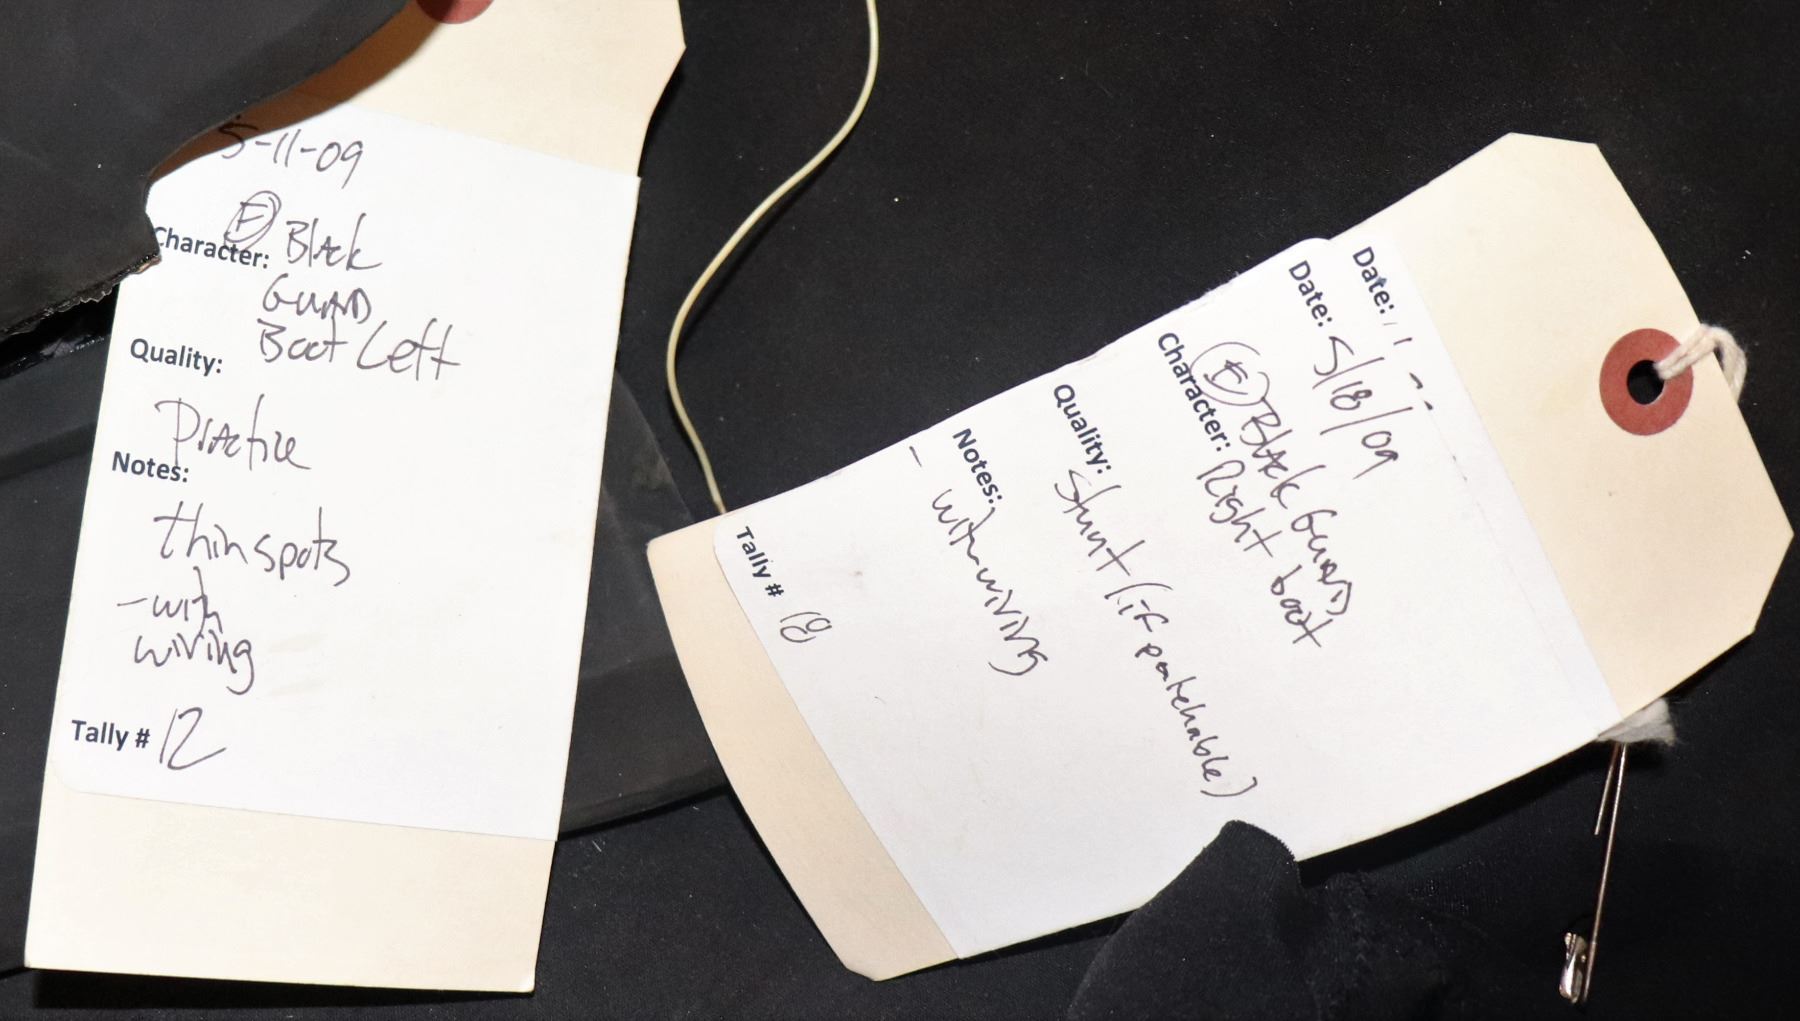 5-11-09
Character: (F) Black
Guard
Boot Left
Quality:
Practice
Notes:
thin spots
- with
wiring
Tally # 12
Date:
Date: 5/18/09
(F) Black Guard
Character: Right boot
Quality: Stunt (if patchable)
Notes:
- with wiring
Tally # 18